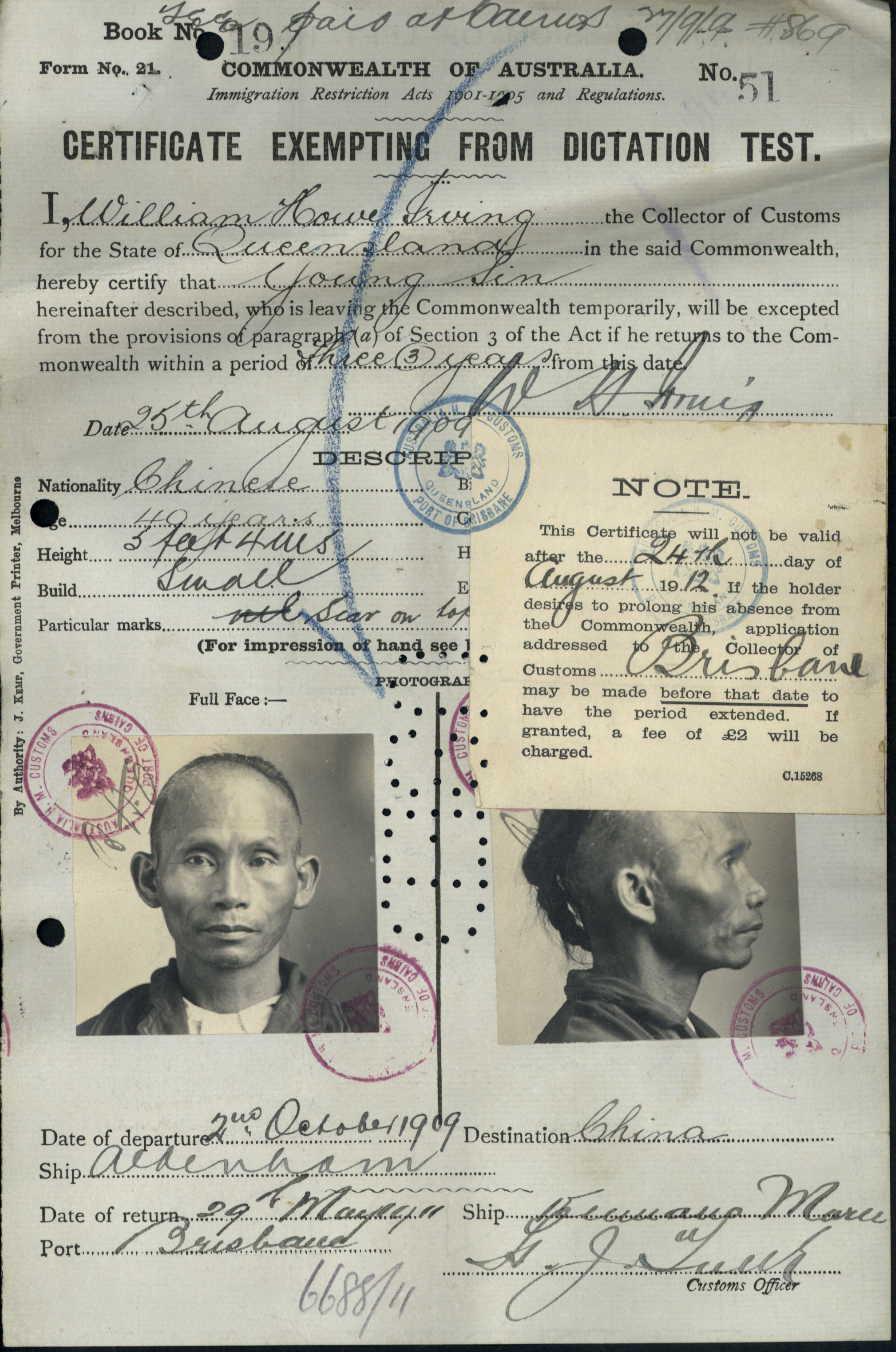 Fee paid at Cairns 27/9/9 #869
Book No. 19
Form No. 21. COMMONWEALTH OF AUSTRALIA. No. 51
Immigration Restriction Acts 1901-1905 and Regulations.
CERTIFICATE EXEMPTING FROM DICTATION TEST.
I, William Howe Irving the Collector of Customs
for the State of Queensland in the said Commonwealth,
hereby certify that Young Sin
hereinafter described, who is leaving the Commonwealth temporarily, will be excepted
from the provisions of paragraph (a) of Section 3 of the Act if he returns to the Com-
monwealth within a period of three (3) years from this date.
W H Irving
Date 25th August 1909
DESCRIP
Nationality Chinese
Age 40 years
Height 5 feet 4 ins
Build Small
Particular marks nil Scar on top
(For impression of hand see
PHOTOGRA
Full Face:—
NOTE.
This Certificate will not be valid
after the 24th day of
August 1912. If the holder
desires to prolong his absence from
the Commonwealth, application
addressed to the Collector of
Customs Brisbane
may be made before that date to
have the period extended. If
granted, a fee of £2 will be
charged.
C.15268
By Authority: J. Kemp, Government Printer, Melbourne
CUSTOMS
QUEENSLAND
PORT OF BRISBANE
H. M. CUSTOMS
PORT OF CAIRNS
Date of departure 2nd October 1909 Destination China
Ship Aldenham
Date of return 29th May 1911 Ship Kumano Maru
Port Brisbane
Customs Officer
6688/11